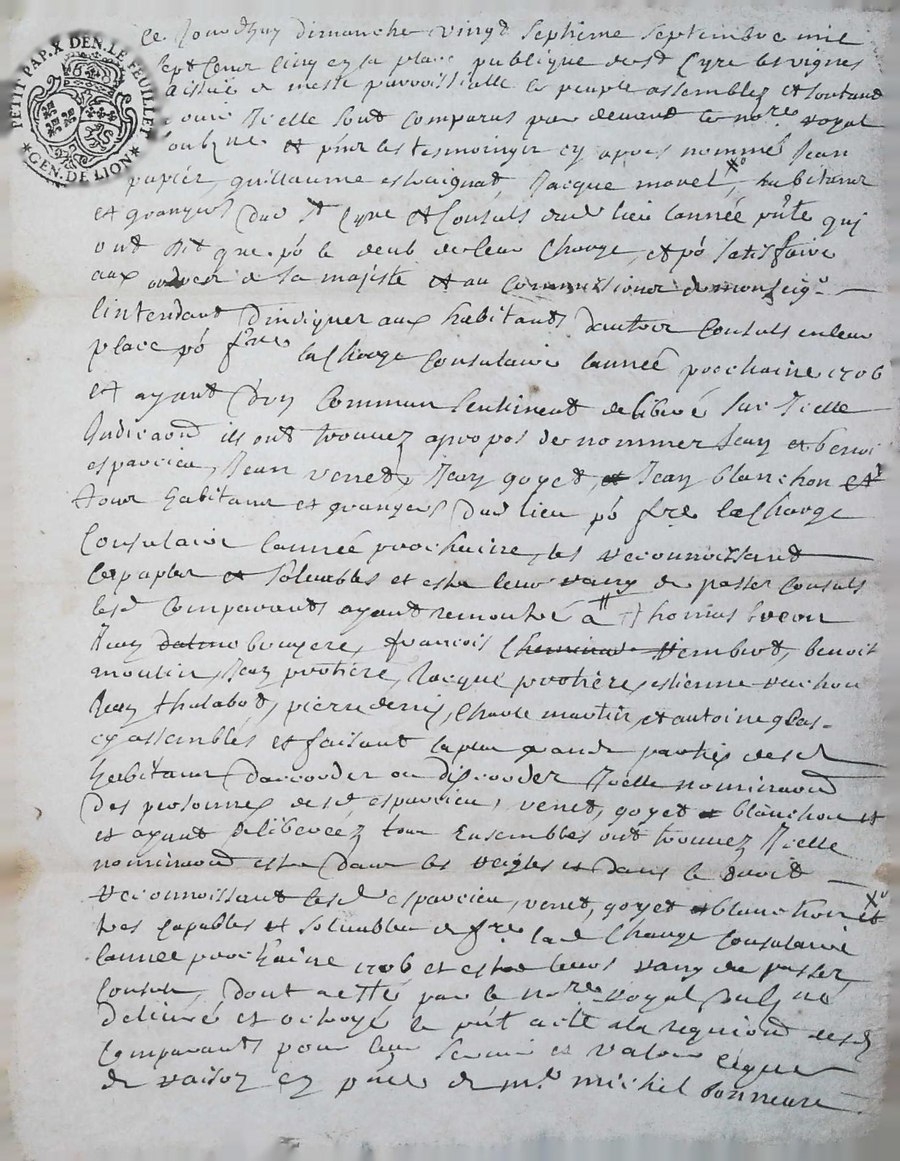 PETIT PAP. X DEN. LE FEUILLET
GEN. DE LION
Ce Jourdhuy dimanche vingt septieme septembre mil
sept cent cinq en la place publique dud St Cyre les vignes
a lissuë de messe parroissielle le peuple assemblez et sortand
dicelle sont comparus par devand le nore royal
et pnts les tesmoingtz cy apres nommé Jean
papier, guillaume estaignat, Jacque morel, habitans
et grangers dud St Cyre et Consuls dud lieu lannée pnte qui
ont dit que po le deub de leur charge, et po satisfaire
aux ordres de sa majiste et au commissions de monseigr
lintendant dindiquer aux habitants dautres Consuls en leur
place po fre la charge Consulaire lannée prochaine 1706
et ayant dun commun sentiment deliberé sur Icelle
Indicaond ils ont trouvez apropos de nommer Jean et benoi
esparcieu, Jean venet, Jean goyet, et Jean blanchon
tous habitans et grangers dud lieu po fre la charge
Consulaire lannée prochaine, les reconnoissant
capables et soluables et estre leur rang de passer consuls
lesd comparants ayant remontré a Thomas
Jean bruyere, francois Vembert, benoit
moulin, Jean protiere, Jacque protiere, estienne vachon
Jean thalabot, pierre denis, Charle martin, et antoine glas
cy assemblés et faisant la plus grande parties desd
habitans daccorder ou discorder Icelle nominaond
des personnes desd esparcieu, venet, goyet et blanchon
et ayant deliberéez tous Ensembles ont trouvez Icelle
nominaond estre dans les reigles et dans le droit
reconnoissant lesd esparcieu, venet, goyet et blanchon
tres capables et soluables de fre lad charge Consulaire
lannée prochaine 1706, et estre leurs rang de passer
Consuls, dont acte par le nore royal
deliuré et octroyé le pnt acte a la requiond desd
comparants pour leur seruir et valoir ce que
de raison en pnce de mre michel bonneure